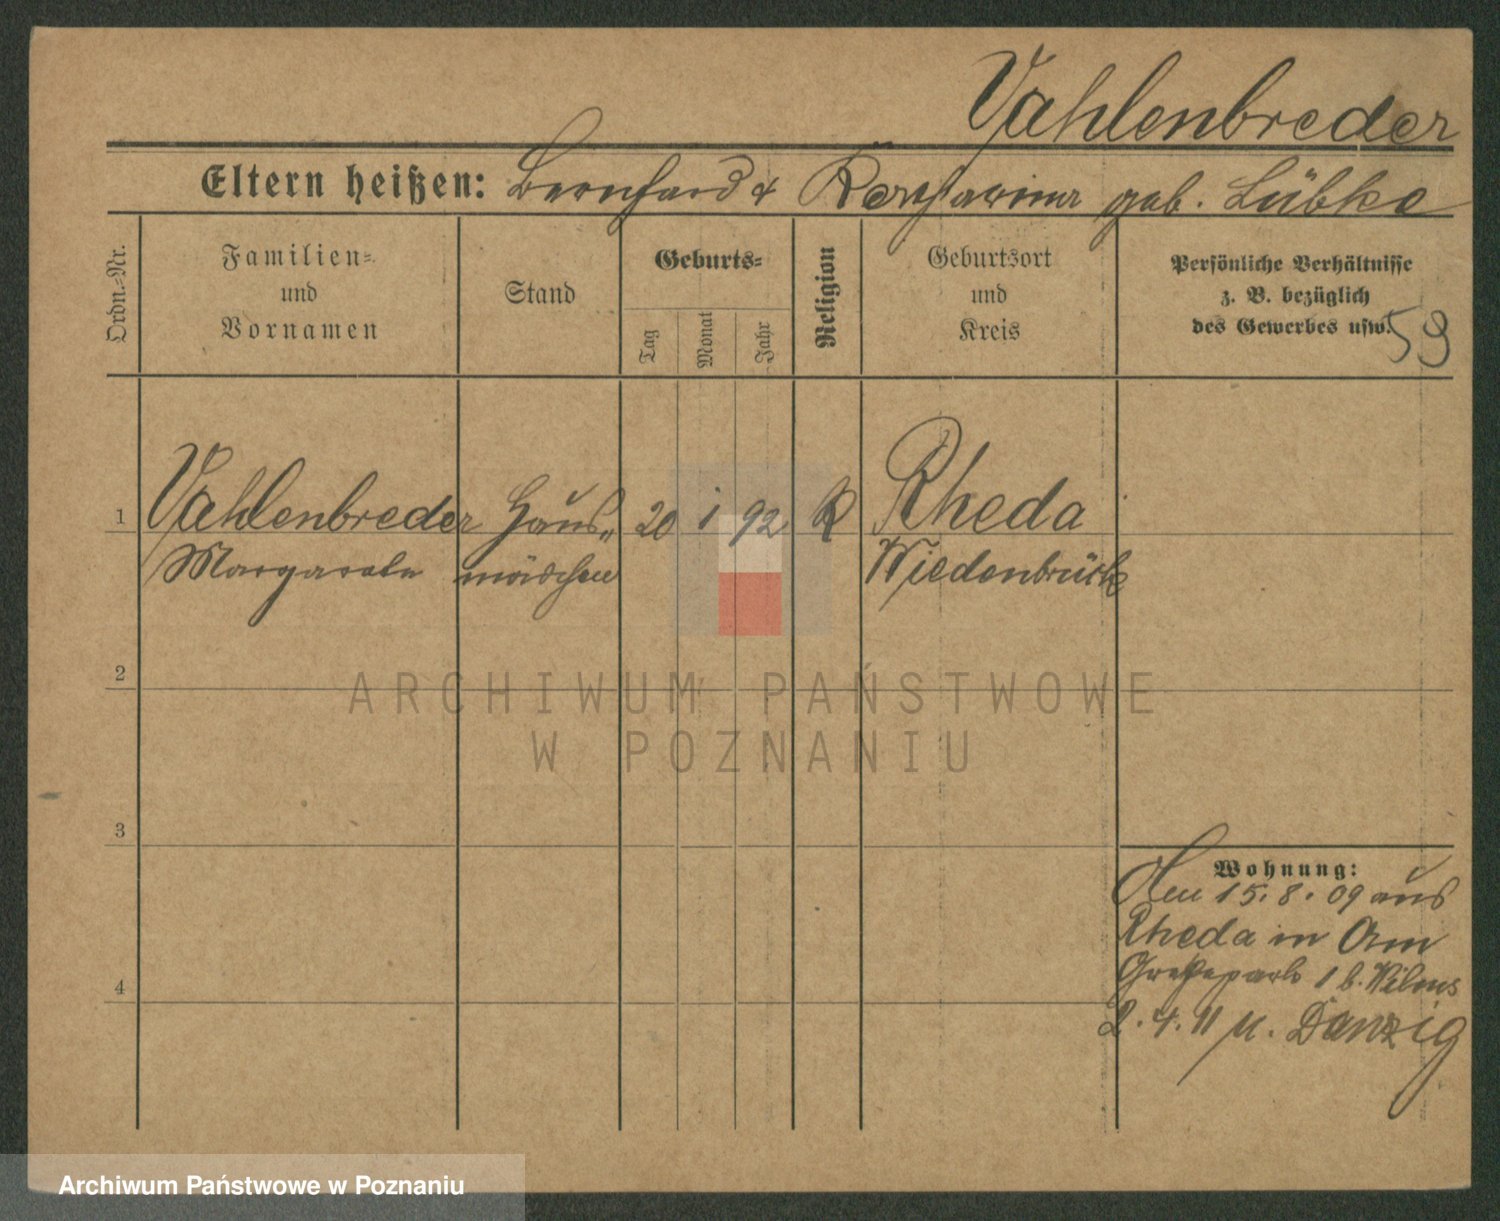 Vahlenbreder
Eltern heißen: Bernhard & Katharina geb. Lübke
Ordn.-Nr.
Familien-
und
Vornamen
Stand
Geburts-
Tag
Monat
Jahr
Religion
Geburtsort
und
Kreis
Persönliche Verhältnisse
z. B. bezüglich
des Gewerbes usw.
59
1 Vahlenbreder Haus- 20 1 92 K Rheda
Margarete mädchen Wiedenbrück
2
ARCHIWUM PAŃSTWOWE
W POZNANIU
3
Wohnung:
Den 15.8.09 aus
Rheda in
1 b. Wilms
4
2.4.11 n. Danzig
Archiwum Państwowe w Poznaniu